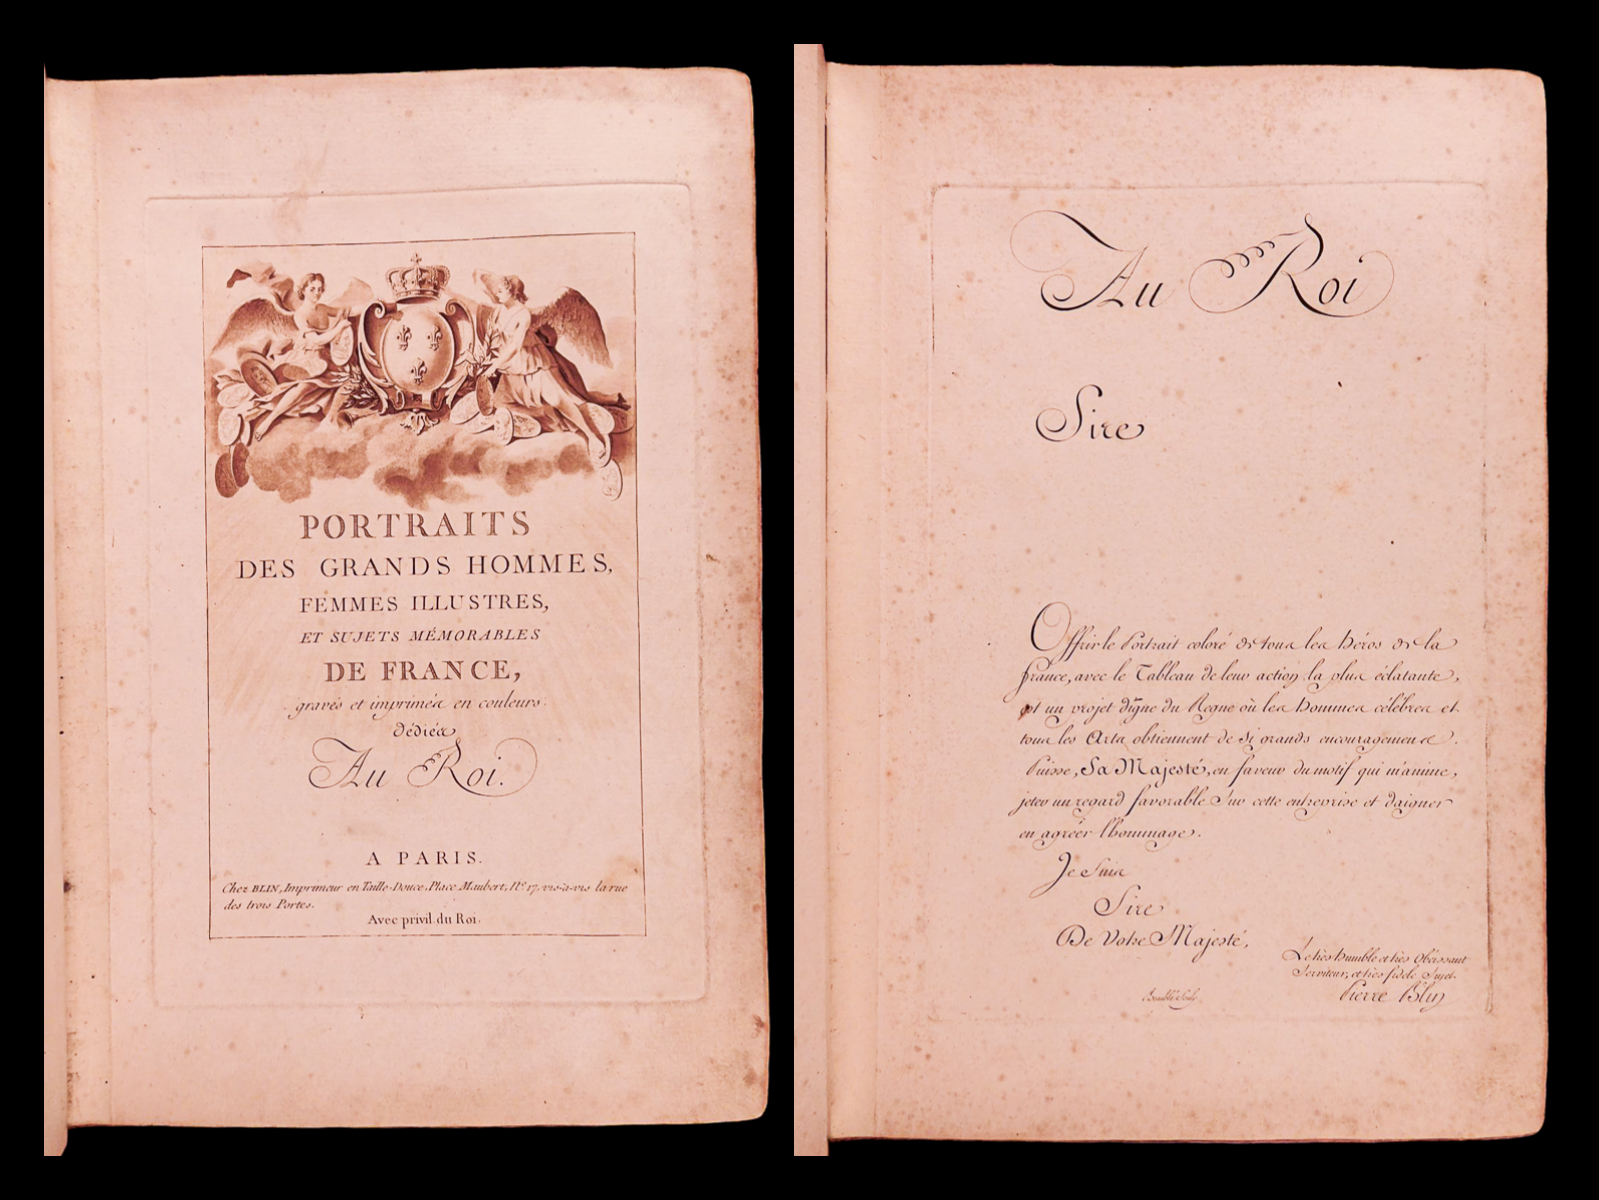 PORTRAITS
DES GRANDS HOMMES,
FEMMES ILLUSTRES,
ET SUJETS MÉMORABLES
DE FRANCE,
gravés et imprimés en couleurs.
dédiés
Au Roi.
A PARIS.
Chez BLIN, Imprimeur en Taille-Douce, Place Maubert, N.º 17, vis-à-vis la rue
des trois Portes.
Avec privil. du Roi.
Au Roi
Sire
Offrir le Portrait coloré de tous les Héros de la
france, avec le Tableau de leur action la plus éclatante,
est un projet digne du Regne où les hommes célèbres et
tous les Arts obtiennent de si grands encouragemens.
Puisse, Sa Majesté, en faveur du motif qui m'anime,
jeter un regard favorable Sur cette entreprise et daigner
en agréer l'hommage.
Je Suis
Sire
De Votre Majesté,
Le très humble et très Obéissant
Serviteur, et très fidele Sujet.
Pierre Blin